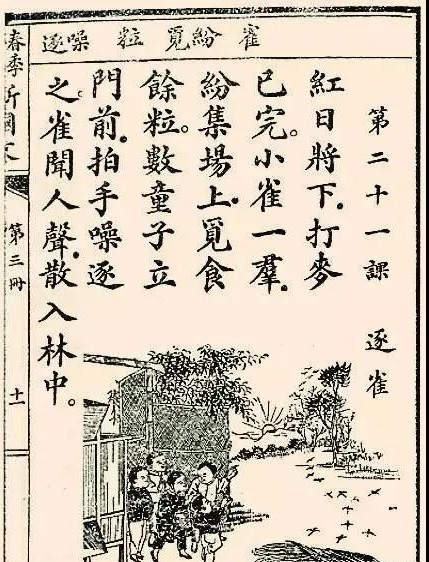 雀 紛 覓 粒 噪 逐
第二十一課 逐雀
紅日將下。打麥
已完。小雀一羣。
紛集場上。覓食
餘粒。數童子立
門前。拍手噪逐
之。雀聞人聲。散入林中。
春季新國文
第三冊
十一